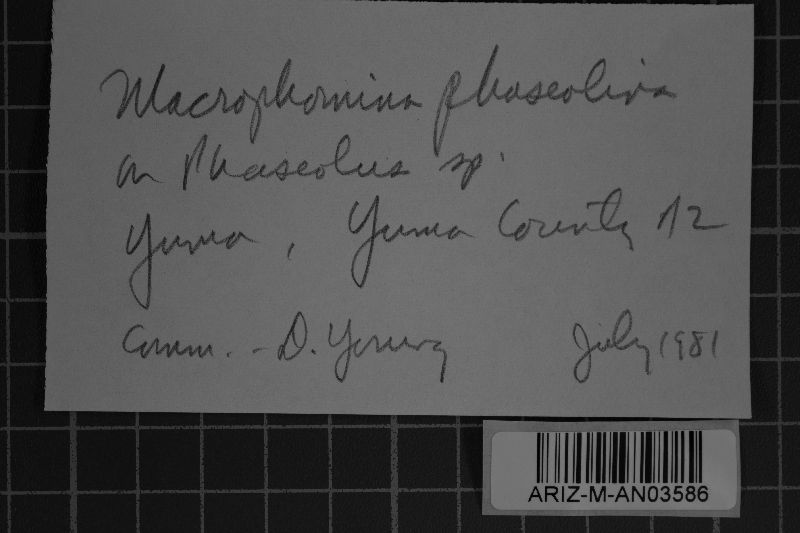 Macrophomina phaseolina
on Phaseolus sp.
Yuma, Yuma County AZ
Comm. - D. Young July 1981
ARIZ-M-AN03586